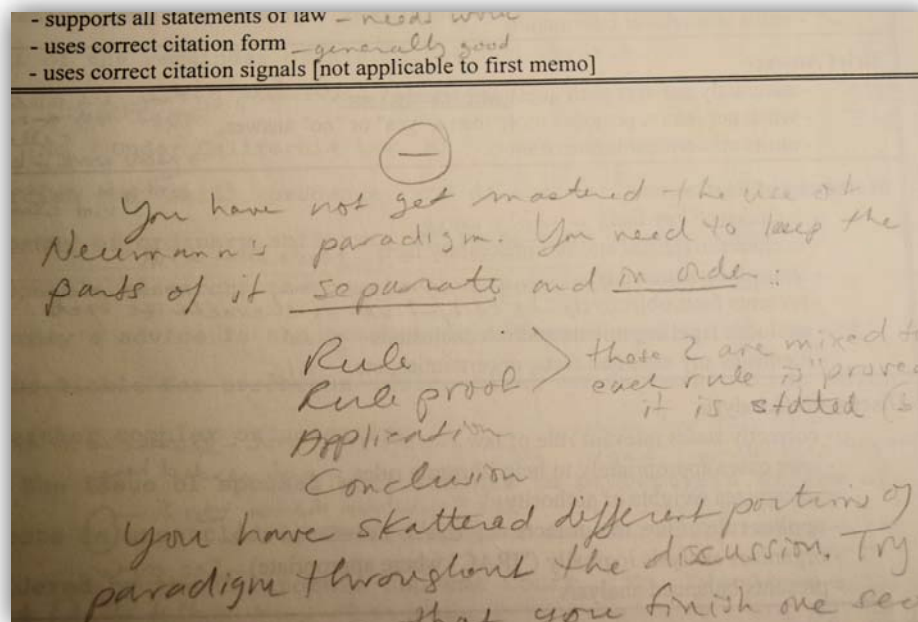 - supports all statements of law – needs work
- uses correct citation form – generally good
- uses correct citation signals [not applicable to first memo]
–
You have not yet mastered the use of
Neumann's paradigm. You need to keep the
parts of it separate and in order:
Rule
Rule proof
those 2 are mixed
each rule is "proved
it is stated
Application
Conclusion
You have skattered different portions of
paradigm throughout the discussion. Try
that you finish one